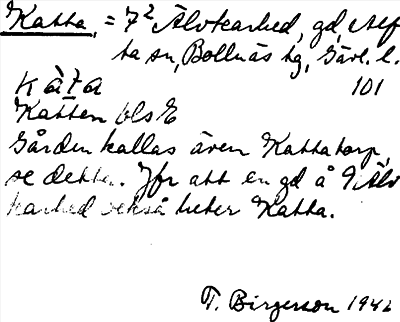 Katta, = 7² Älvkarhed, gd, Alf
ta sn, Bollnäs tg, Gävl. l.
kàta 101
Katten bls E
Gården kallas även Kattatorp
se detta. Jfr att en gd å 9 Älv
karhed också heter Katta.
T. Birgerson 1946